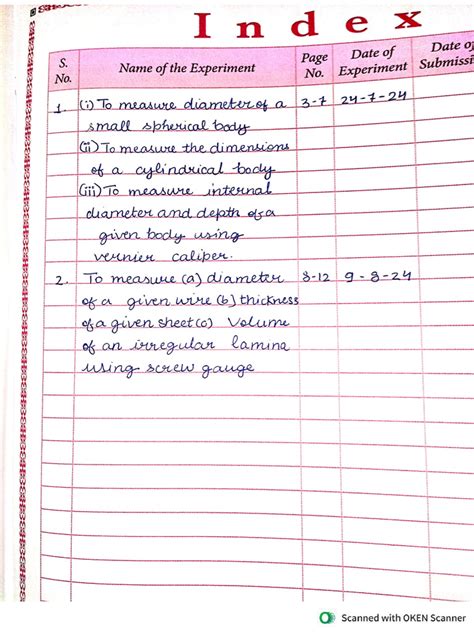 Index
S. No.
Name of the Experiment
Page No.
Date of Experiment
Date of Submissi
1. (i) To measure diameter of a 3-7 24-7-24
small spherical body
(ii) To measure the dimensions
of a cylindrical body
(iii) To measure internal
diameter and depth of a
given body using
vernier caliper.
2. To measure (a) diameter 8-12 9-8-24
of a given wire (b) thickness
of a given sheet (c) Volume
of an irregular lamina
using screw gauge
Scanned with OKEN Scanner